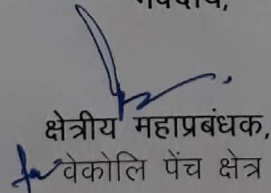 भवदीय,
क्षेत्रीय महाप्रबंधक,
वेकोलि पेंच क्षेत्र